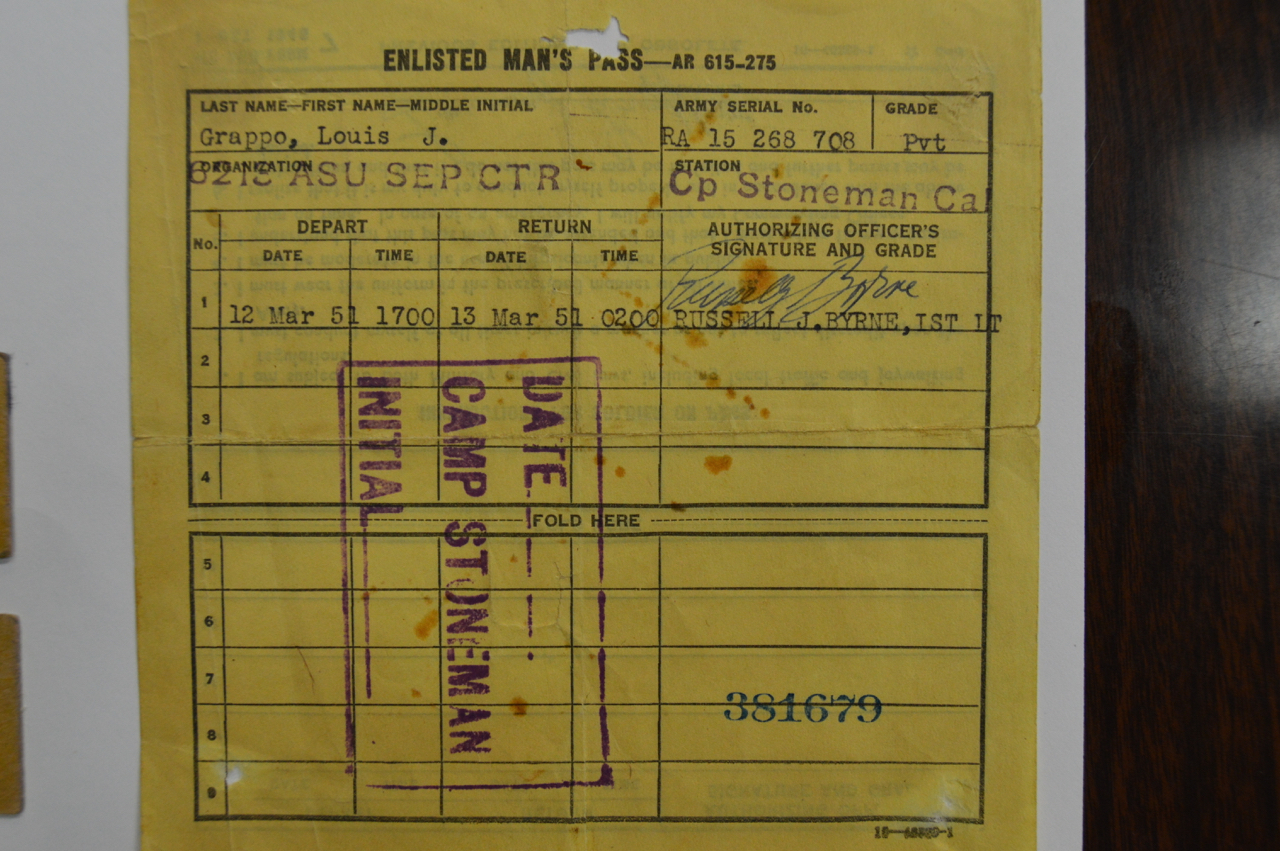 ENLISTED MAN'S PASS—AR 615-275
LAST NAME—FIRST NAME—MIDDLE INITIAL
ARMY SERIAL No.
GRADE
Grappo, Louis J.
RA 15 268 708
Pvt
ORGANIZATION
ASU SEP CTR
STATION
Cp Stoneman Cal
No.
DEPART
RETURN
AUTHORIZING OFFICER'S
SIGNATURE AND GRADE
DATE
TIME
DATE
TIME
1
12 Mar 51
1700
13 Mar 51
0200
Russell J Byrne
RUSSELL J.BYRNE,1ST LT
2
3
4
DATE
CAMP STONEMAN
INITIAL
FOLD HERE
5
6
7
8
9
381679